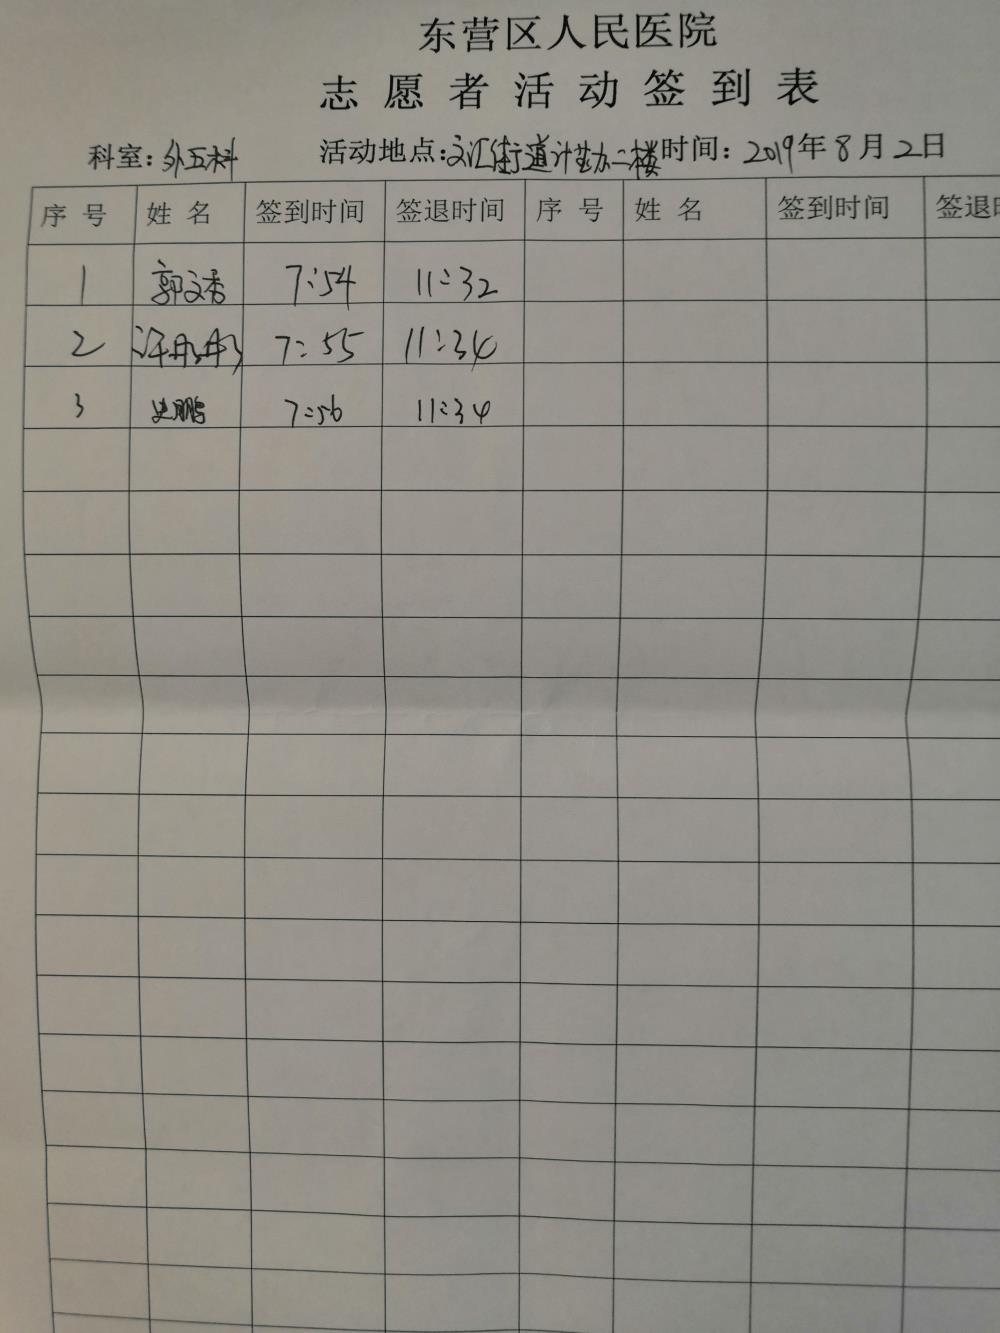 东营区人民医院
志愿者活动签到表
科室：外五科 活动地点：文汇街道计生办二楼 时间：2019年8月2日
序号 姓名 签到时间 签退时间 序号 姓名 签到时间 签退时
1 郭文秀 7:54 11:32
2 汗彤彤 7:55 11:34
3 史鹏 7:56 11:34